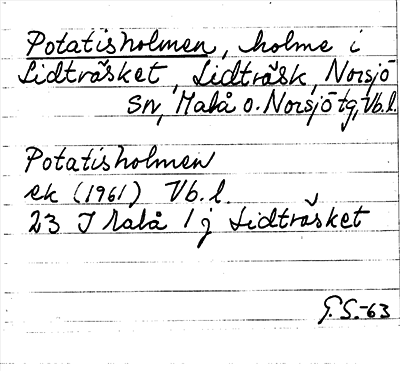 Potatisholmen, holme i
Lidträsket, Lidträsk, Norsjö
sn, Malå o. Norsjö tg, Vb.l.
Potatisholmen
ek (1961) Vb.l.
23 I Malå 1 j Lidträsket
G.S.-63